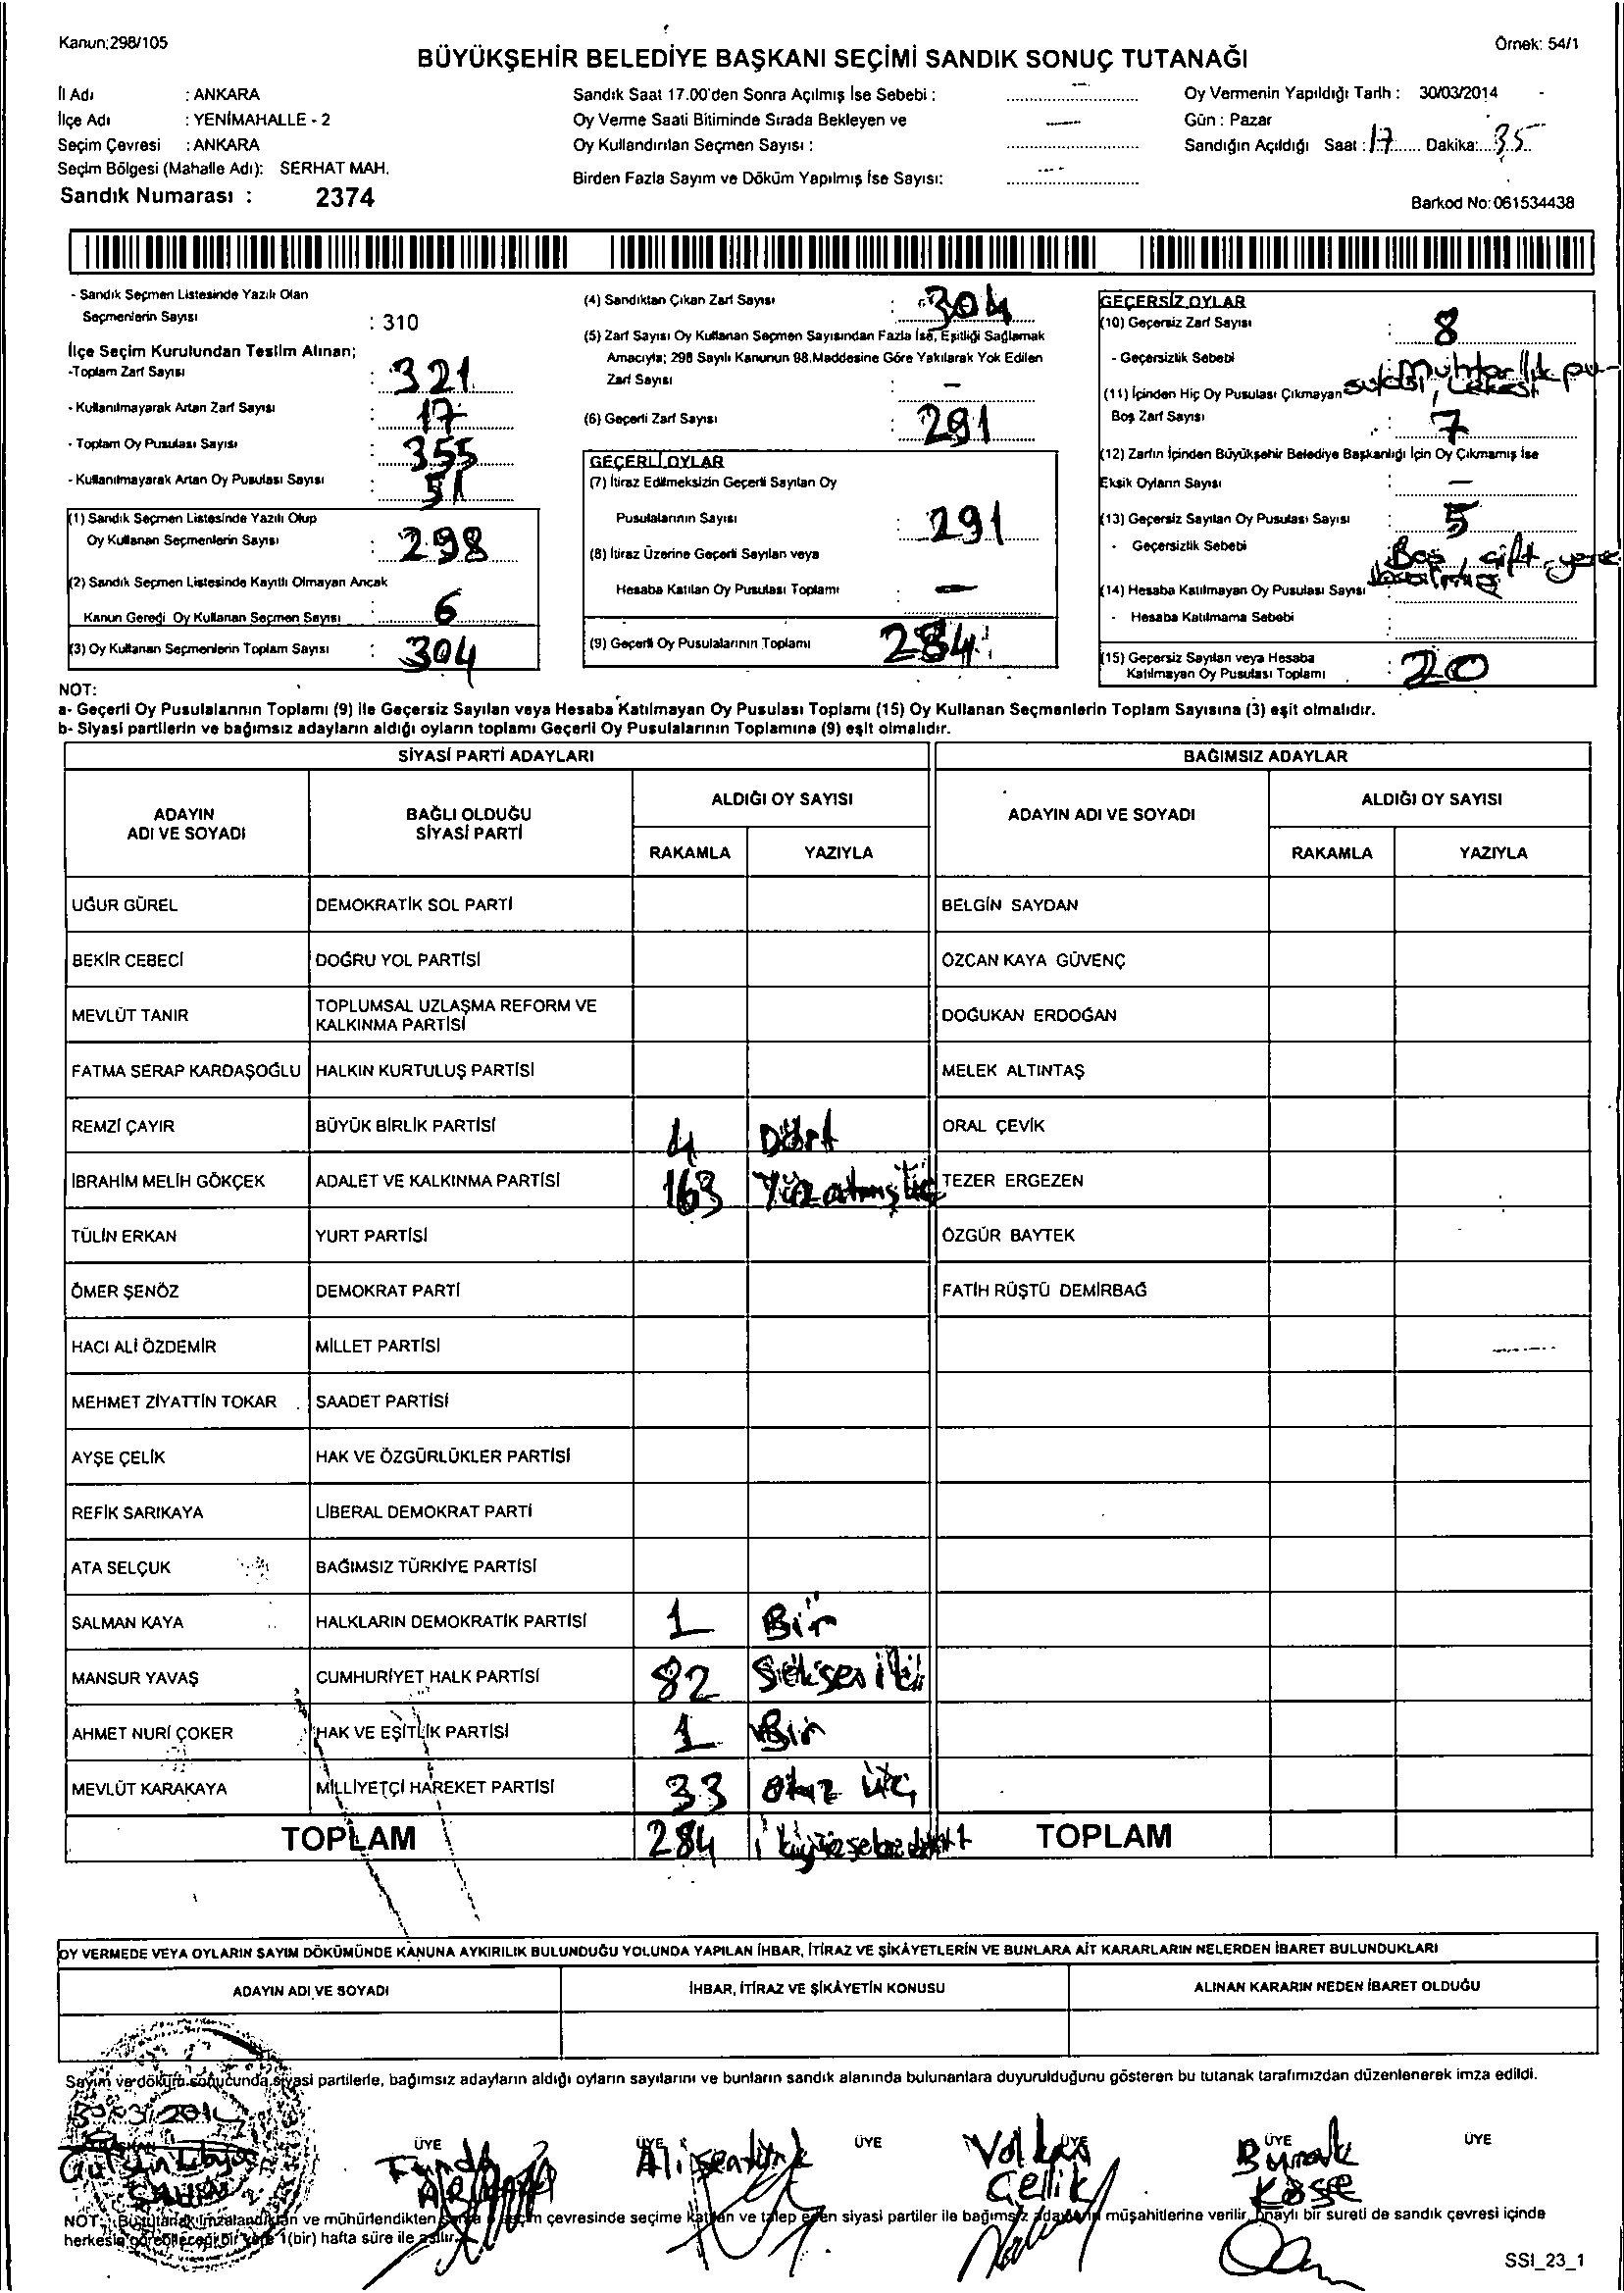 Kanun;298/105
Örnek: 54/1
BÜYÜKŞEHİR BELEDİYE BAŞKANI SEÇİMİ SANDIK SONUÇ TUTANAĞI
İl Adı : ANKARA
İlçe Adı : YENİMAHALLE - 2
Seçim Çevresi : ANKARA
Seçim Bölgesi (Mahalle Adı): SERHAT MAH.
Sandık Numarası : 2374
Sandık Saat 17.00'den Sonra Açılmış İse Sebebi :
Oy Verme Saati Bitiminde Sırada Bekleyen ve
Oy Kullandırılan Seçmen Sayısı :
Birden Fazla Sayım ve Döküm Yapılmış İse Sayısı:
Oy Vermenin Yapıldığı Tarih : 30/03/2014
Gün : Pazar
Sandığın Açıldığı Saat : 17 Dakika: 35
Barkod No: 061534438
- Sandık Seçmen Listesinde Yazılı Olan
Seçmenlerin Sayısı : 310
İlçe Seçim Kurulundan Teslim Alınan;
-Toplam Zarf Sayısı : 321
- Kullanılmayarak Artan Zarf Sayısı : 17
- Toplam Oy Pusulası Sayısı : 355
- Kullanılmayarak Artan Oy Pusulası Sayısı : 51
(1) Sandık Seçmen Listesinde Yazılı Olup
Oy Kullanan Seçmenlerin Sayısı : 298
(2) Sandık Seçmen Listesinde Kayıtlı Olmayan Ancak
Kanun Gereği Oy Kullanan Seçmen Sayısı : 6
(3) Oy Kullanan Seçmenlerin Toplam Sayısı : 304
(4) Sandıktan Çıkan Zarf Sayısı : 304
(5) Zarf Sayısı Oy Kullanan Seçmen Sayısından Fazla İse, Eşitliği Sağlamak
Amacıyla; 298 Sayılı Kanunun 98.Maddesine Göre Yakılarak Yok Edilen
Zarf Sayısı : –
(6) Geçerli Zarf Sayısı : 291
GEÇERLİ OYLAR
(7) İtiraz Edilmeksizin Geçerli Sayılan Oy
Pusulalarının Sayısı : 291
(8) İtiraz Üzerine Geçerli Sayılan veya
Hesaba Katılan Oy Pusulası Toplamı : –
(9) Geçerli Oy Pusulalarının Toplamı 284
GEÇERSİZ OYLAR
(10) Geçersiz Zarf Sayısı : 8
- Geçersizlik Sebebi : Muhtarlık pu-
(11) İçinden Hiç Oy Pusulası Çıkmayan
Boş Zarf Sayısı : 7
(12) Zarfın İçinden Büyükşehir Belediye Başkanlığı İçin Oy Çıkmamış İse
Eksik Oyların Sayısı : –
(13) Geçersiz Sayılan Oy Pusulası Sayısı : 5
- Geçersizlik Sebebi : Boş, çift yere
(14) Hesaba Katılmayan Oy Pusulası Sayısı
- Hesaba Katılmama Sebebi :
(15) Geçersiz Sayılan veya Hesaba
Katılmayan Oy Pusulası Toplamı : 20
NOT:
a- Geçerli Oy Pusulalarının Toplamı (9) ile Geçersiz Sayılan veya Hesaba Katılmayan Oy Pusulası Toplamı (15) Oy Kullanan Seçmenlerin Toplam Sayısına (3) eşit olmalıdır.
b- Siyasi partilerin ve bağımsız adayların aldığı oyların toplamı Geçerli Oy Pusulalarının Toplamına (9) eşit olmalıdır.
SİYASİ PARTİ ADAYLARI BAĞIMSIZ ADAYLAR
ADAYIN ADI VE SOYADI BAĞLI OLDUĞU SİYASİ PARTİ ALDIĞI OY SAYISI ADAYIN ADI VE SOYADI ALDIĞI OY SAYISI
RAKAMLA YAZIYLA RAKAMLA YAZIYLA
UĞUR GÜREL DEMOKRATİK SOL PARTİ BELGİN SAYDAN
BEKİR CEBECİ DOĞRU YOL PARTİSİ ÖZCAN KAYA GÜVENÇ
MEVLÜT TANIR TOPLUMSAL UZLAŞMA REFORM VE KALKINMA PARTİSİ DOĞUKAN ERDOĞAN
FATMA SERAP KARDAŞOĞLU HALKIN KURTULUŞ PARTİSİ MELEK ALTINTAŞ
REMZİ ÇAYIR BÜYÜK BİRLİK PARTİSİ 4 Dört ORAL ÇEVİK
İBRAHİM MELİH GÖKÇEK ADALET VE KALKINMA PARTİSİ 163 Yüzatmışüç TEZER ERGEZEN
TÜLİN ERKAN YURT PARTİSİ ÖZGÜR BAYTEK
ÖMER ŞENÖZ DEMOKRAT PARTİ FATİH RÜŞTÜ DEMİRBAĞ
HACI ALİ ÖZDEMİR MİLLET PARTİSİ
MEHMET ZİYATTİN TOKAR SAADET PARTİSİ
AYŞE ÇELİK HAK VE ÖZGÜRLÜKLER PARTİSİ
REFİK SARIKAYA LİBERAL DEMOKRAT PARTİ
ATA SELÇUK BAĞIMSIZ TÜRKİYE PARTİSİ
SALMAN KAYA HALKLARIN DEMOKRATİK PARTİSİ 1 Bir
MANSUR YAVAŞ CUMHURİYET HALK PARTİSİ 82 Seksen iki
AHMET NURİ ÇOKER HAK VE EŞİTLİK PARTİSİ 1 Bir
MEVLÜT KARAKAYA MİLLİYETÇİ HAREKET PARTİSİ 33 Otuz üç
TOPLAM 284 TOPLAM
OY VERMEDE VEYA OYLARIN SAYIM DÖKÜMÜNDE KANUNA AYKIRILIK BULUNDUĞU YOLUNDA YAPILAN İHBAR, İTİRAZ VE ŞİKÂYETLERİN VE BUNLARA AİT KARARLARIN NELERDEN İBARET BULUNDUKLARI
ADAYIN ADI VE SOYADI İHBAR, İTİRAZ VE ŞİKÂYETİN KONUSU ALINAN KARARIN NEDEN İBARET OLDUĞU
Sayım ve döküm sonucunda siyasi partilerle, bağımsız adayların aldığı oyların sayılarını ve bunların sandık alanında bulunanlara duyurulduğunu gösteren bu tutanak tarafımızdan düzenlenerek imza edildi.
ÜYE ÜYE ÜYE ÜYE ÜYE ÜYE
Funda Volkan Burak
Çelik Köse
NOT: Bu tutanak imzalandıktan ve mühürlendikten sonra o seçim çevresinde seçime katılan ve talep eden siyasi partiler ile bağımsız adayların müşahitlerine verilir, onaylı bir sureti de sandık çevresi içinde
herkesin görebileceği bir yere 1(bir) hafta süre ile asılır.
SSI_23_1